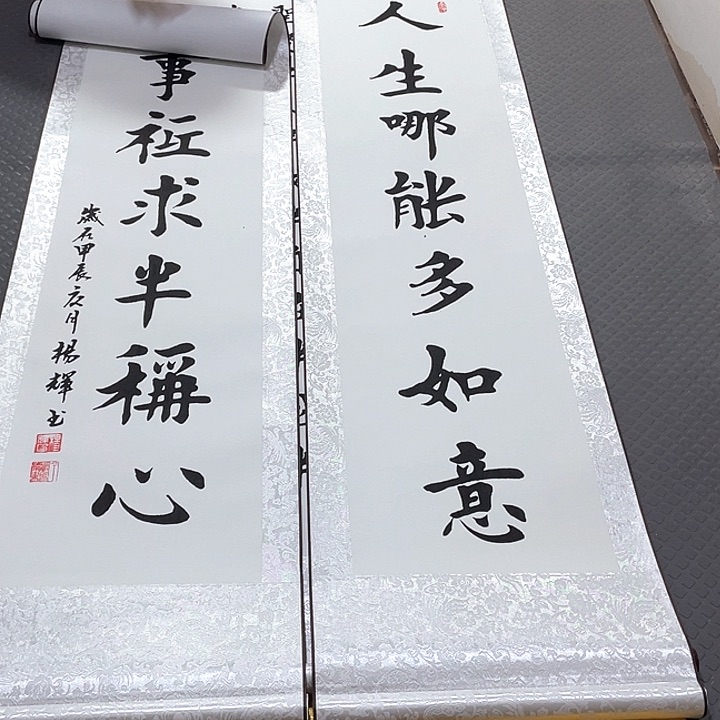 人生哪能多如意
事祗求半稱心
歲在甲辰夏月楊輝书